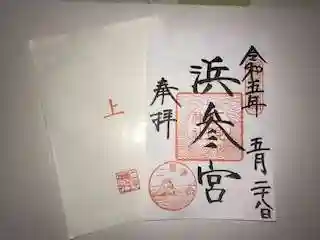 令和五年
五月二十八日
浜参宮
奉拝
上